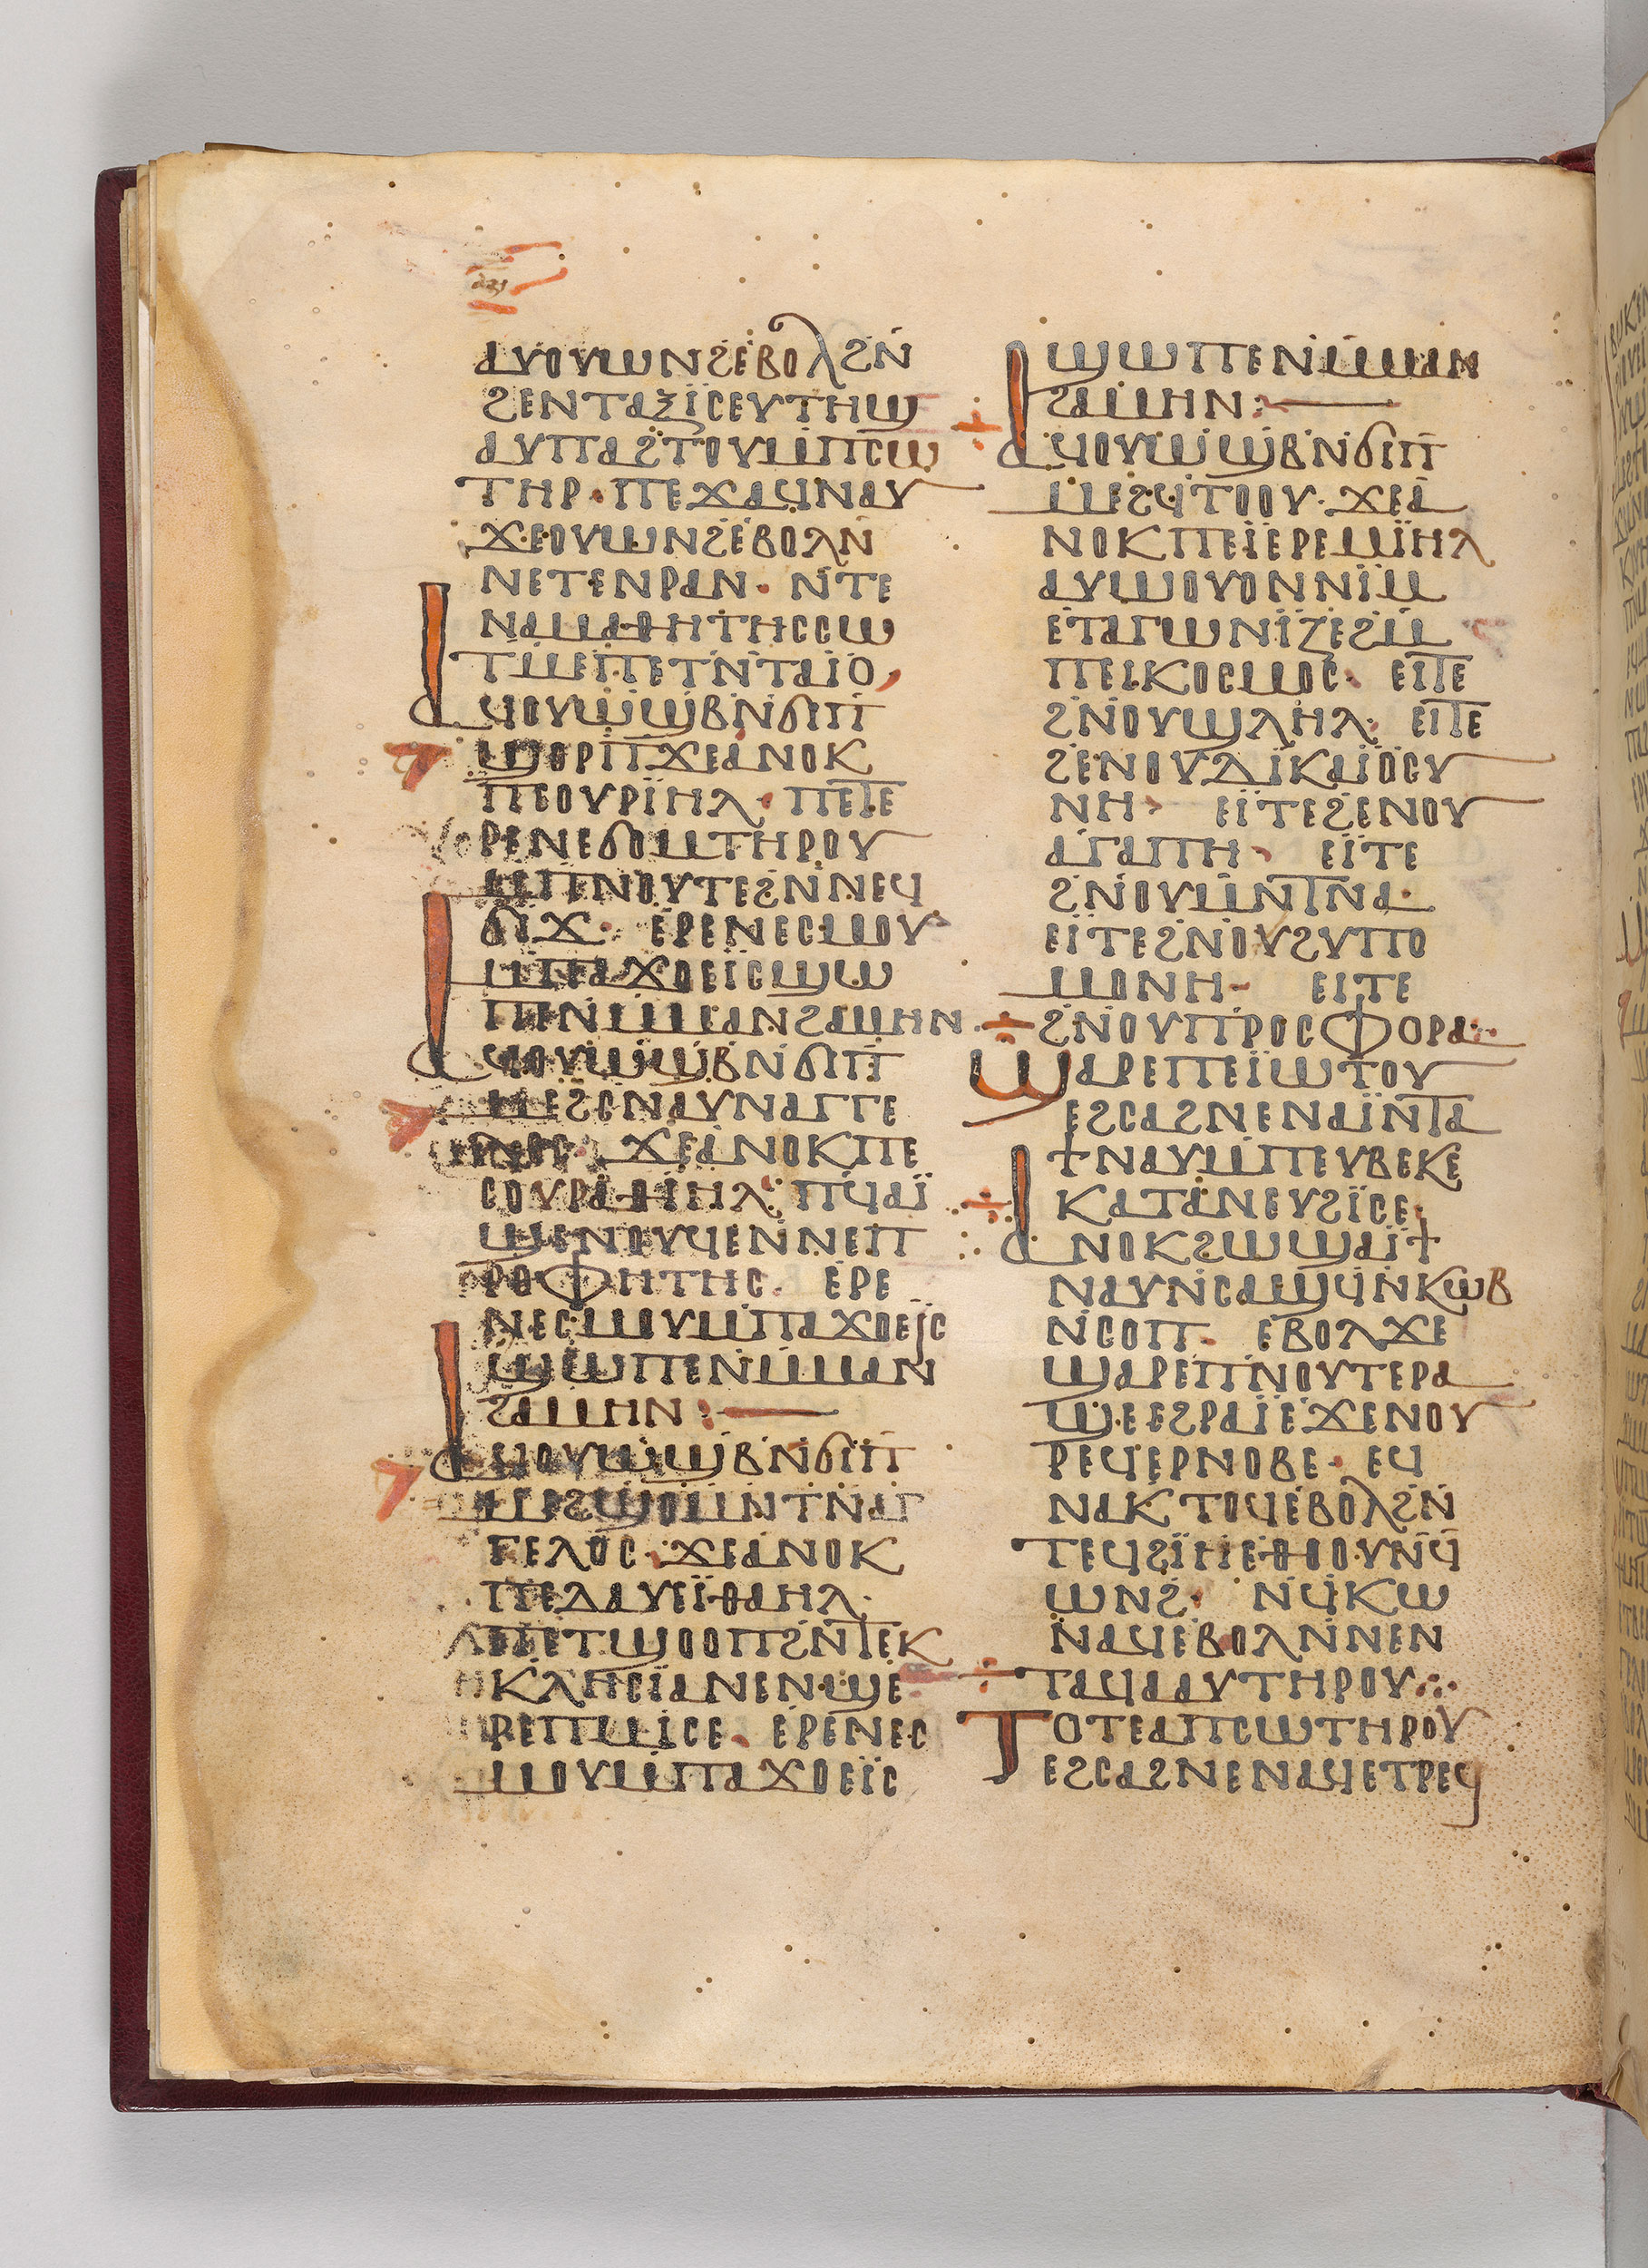 ⲁⲩⲟⲩⲱⲛϩⲉⲃⲟⲗϩⲛ̄
ϩⲉⲛⲧⲁⲝⲓ̈ⲥⲉⲩⲧⲏϣ
ⲁⲩⲡⲁϩⲧⲟⲩⲙ̄ⲡⲥⲱ
ⲧⲏⲣ· ⲡⲉϫⲁϥⲛⲁⲩ
ϫⲉⲟⲩⲱⲛϩⲉⲃⲟⲗⲛ̄
ⲛⲉⲧⲉⲛⲣⲁⲛ· ⲛ̄ⲧⲉ
ⲛⲁⲙⲁⲑⲏⲧⲏⲥⲥⲱ
ⲧⲙⲉⲡⲉⲧⲛ̄ⲧⲁⲓ̈ⲟ
ⲁϥⲟⲩⲱϣⲃⲛ̄ϭⲓⲡ
ϣⲟⲣⲡ̄ϫⲉⲁⲛⲟⲕ
ⲡⲉⲟⲩⲣⲓ̈ⲏⲗ· ⲡⲉⲧⲉ
ⲣⲉⲛⲉϭⲟⲙⲧⲏⲣⲟⲩ
ⲙ̄ⲡⲛⲟⲩⲧⲉϩⲛ̄ⲛⲉϥ
ϭⲓϫ· ⲉⲣⲉⲛⲉⲥⲙⲟⲩ
ⲙ̄ⲡⲁϫⲟⲉⲓ̈ⲥϣⲱ
ⲡⲉⲛⲙ̄ⲙⲁⲛϩⲁⲙⲏⲛ
ⲁϥⲟⲩⲱϣⲃⲛ̄ϭⲓⲡ
ⲙⲉϩⲥⲛⲁⲩⲛⲁⲅⲅⲉ
ⲗⲟⲥ· ϫⲉⲁⲛⲟⲕⲡⲉ
ⲥⲟⲩⲣⲁⲑⲓⲏⲗ· ⲡϥⲁⲓ̈
ϣⲉⲛⲟⲩϥⲉⲛ̄ⲛⲉⲡ
ⲣⲟⲫⲏⲧⲏⲥ· ⲉⲣⲉ
ⲛⲉⲥⲙⲟⲩⲙ̄ⲡⲁϫⲟⲉⲓⲥ
ϣⲱⲡⲉⲛⲙ̄ⲙⲁⲛ
ϩⲁⲙⲏⲛ:—
ⲁϥⲟⲩⲱϣⲃⲛ̄ϭⲓⲡ
ⲙⲉϩϣⲟⲙⲛ̄ⲧⲛⲁⲅ
ⲅⲉⲗⲟⲥ· ϫⲉⲁⲛⲟⲕ
ⲡⲉⲇⲁⲩⲉⲓ̈ⲑⲁⲏⲗ·
ⲡⲉⲧϣⲟⲟⲡϩⲛ̄ⲧⲉⲕ
ⲕⲗⲏⲥⲓ̈ⲁⲛⲉⲛϣⲉ
ⲣⲉⲡⲙⲓⲥⲉ· ⲉⲣⲉⲛⲉⲥ
ⲙⲟⲩⲙ̄ⲡⲁϫⲟⲉⲓ̈ⲥ
ϣⲱⲡⲉⲛⲙ̄ⲙⲁⲛ
ϩⲁⲙⲏⲛ:—
ⲁϥⲟⲩⲱϣⲃⲛ̄ϭⲓⲡ
ⲙⲉϩϥⲧⲟⲟⲩ· ϫⲉⲁ
ⲛⲟⲕⲡⲉⲓ̈ⲉⲣⲉⲙⲓ̈ⲏⲗ
ⲁⲩⲱⲟⲩⲟⲛⲛⲓ̈ⲙ
ⲉⲧⲁⲅⲱⲛⲓ̈ⲍⲉϩⲙ̄
ⲡⲉⲓⲕⲟⲥⲙⲟⲥ· ⲉⲓⲧⲉ
ϩⲛ̄ⲟⲩϣⲗⲏⲗ· ⲉⲓⲧⲉ
ϩⲉⲛⲟⲩⲇⲓ̈ⲕⲁⲓ̈ⲟⲥⲩ
ⲛⲏ· ⲉⲓ̈ⲧⲉϩⲉⲛⲟⲩ
ⲁⲅⲁⲡⲏ· ⲉⲓ̈ⲧⲉ
ϩⲛ̄ⲟⲩⲙⲛ̄ⲧⲛⲁ·
ⲉⲓ̈ⲧⲉϩⲛ̄ⲟⲩϩⲩⲡⲟ
ⲙⲟⲛⲏ· ⲉⲓⲧⲉ
ϩⲛ̄ⲟⲩⲡⲣⲟⲥⲫⲟⲣⲁ·
ϣⲁⲣⲉⲡⲉⲓ̈ⲱⲧⲟⲩ
ⲉϩⲥⲁϩⲛⲉⲛⲁⲓ̈ⲛ̄ⲧⲁ
ϯⲛⲁⲩⲙ̄ⲡⲉⲩⲃⲉⲕⲉ
ⲕⲁⲧⲁⲛⲉⲩϩⲓ̈ⲥⲉ·
ⲁⲛⲟⲕϩⲱϣⲁⲓ̈ϯ
ⲛⲁⲩⲛ̄ⲥⲁϣϥⲛ̄ⲕⲱⲃ
ⲛ̄ⲥⲟⲡ· ⲉⲃⲟⲗϫⲉ
ϣⲁⲣⲉⲡⲛⲟⲩⲧⲉⲣⲁ
ϣⲉⲉϩⲣⲁⲓ̈ⲉϫⲉⲛⲟⲩ
ⲣⲉϥⲉⲣⲛⲟⲃⲉ· ⲉϥ
ⲛⲁⲕⲧⲟϥⲉⲃⲟⲗϩⲛ̄
ⲧⲉϥϩⲓ̈ⲏⲉⲑⲟⲟⲩⲛ̄ϥ
ⲱⲛϩ· ⲛ̄ϥⲕⲱ
ⲛⲁϥⲉⲃⲟⲗⲛ̄ⲛⲉⲛ
ⲧⲁϥⲁⲁⲩⲧⲏⲣⲟⲩ·:·
ⲧⲟⲧⲉⲁⲡⲥⲱⲧⲏⲣⲟⲩ
ⲉϩⲥⲁϩⲛⲉⲛⲁϥⲉⲧⲣⲉϥ